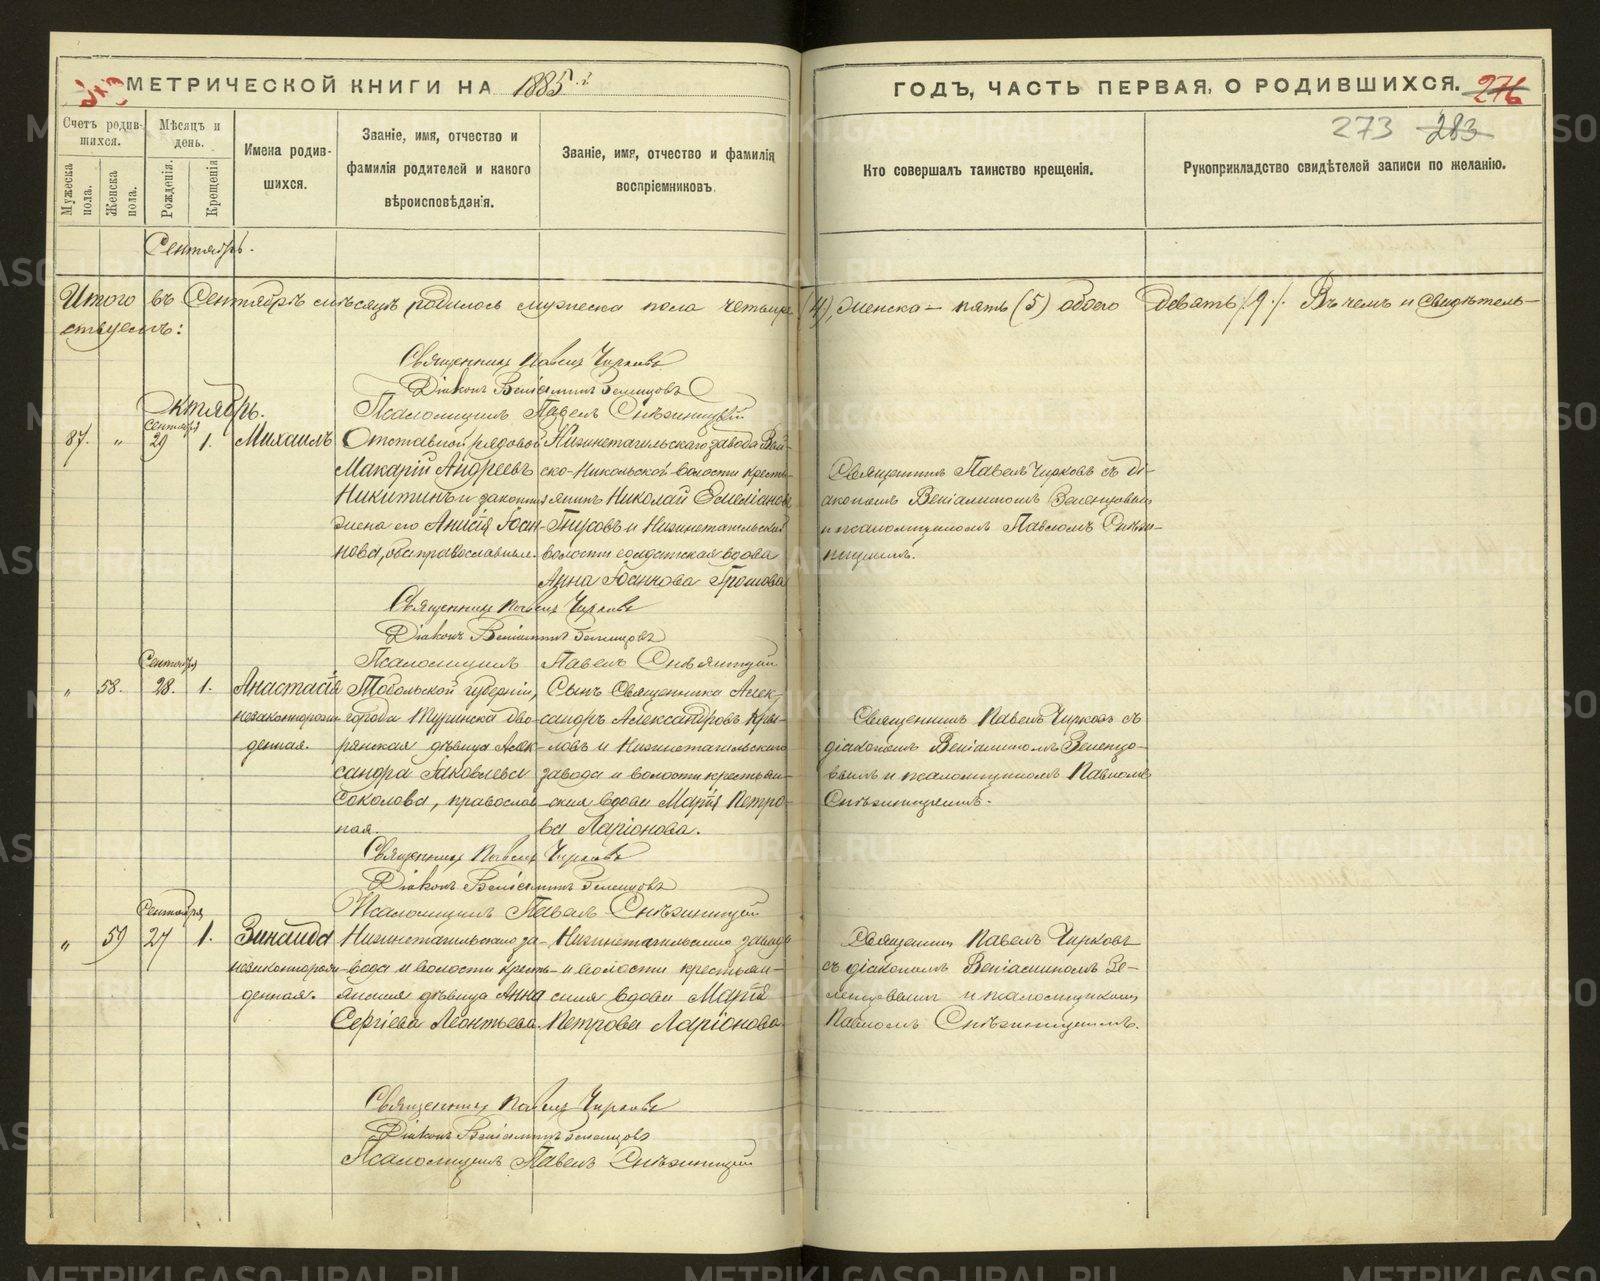 МЕТРИЧЕСКОЙ КНИГИ НА 1885
ГОДЪ, ЧАСТЬ ПЕРВАЯ, О РОДИВШИХСЯ. 276
273 283
Счетъ родив-
шихся.
Мужеска пола.
Женска пола.
Мѣсяцъ и
день.
Рожденія.
Крещенія
Имена родив-
шихся.
Званіе, имя, отчество и
фамилія родителей и какого
вѣроисповѣданія.
Званіе, имя, отчество и фамилія
воспріемниковъ.
Кто совершалъ таинство крещенія.
Рукоприкладство свидѣтелей записи по желанію.
Сентябрь.
Итого въ Сентябрѣ мѣсяцѣ родилось мужеска пола четыре (4), женска – пять (5) обоего девять /9/. Въ чемъ и свидѣтель-
ствуемъ:
Священникъ Павелъ Чирковъ
Діаконъ Веніаминъ Зеленцовъ
Псаломщикъ Павелъ Снѣжницкій
Октябрь.
87. „ Сентября 29 1. Михаилъ
Отставной рядовой
Макарій Андреевъ
Никитинъ и законная
жена его Анисія Іоан-
нова, оба православные.
Нижнетагильскаго завода Вый-
ско-Никольской волости кресть-
янинъ Николай Емеліановъ
Гнусовъ и Нижнетагильской
волости солдатская вдова
Анна Іоаннова Громова
Священникъ Павелъ Чирковъ съ ді-
акономъ Веніаминомъ Зеленцовымъ
и псаломщикомъ Павломъ Снѣж-
ницкимъ.
Священникъ Павелъ Чирковъ
Діаконъ Веніаминъ Зеленцовъ
Псаломщикъ Павелъ Снѣжницкій
„ 58. Сентября 28. 1. Анастасія
незаконнорож-
денная.
Тобольской губерніи,
города Туринска дво-
рянская дѣвица Алек-
сандра Іаковлева
Соколова, православ-
ная.
Сынъ Священника Алек-
сандръ Александровъ Кры-
ловъ и Нижнетагильскаго
завода и волости крестьян-
ская вдова Марія Петро-
ва Ларіонова.
Священникъ Павелъ Чирковъ съ
діакономъ Веніаминомъ Зеленцо-
вымъ и псаломщикомъ Павломъ
Снѣжницкимъ.
Священникъ Павелъ Чирковъ
Діаконъ Веніаминъ Зеленцовъ
Псаломщикъ Павелъ Снѣжницкій
„ 59 Сентября 27 1. Зинаида
незаконнорож-
денная.
Нижнетагильскаго за-
вода и волости кресть-
янская дѣвица Анна
Сергіева Леонтьева.
Нижнетагильскаго завода
и волости крестьян-
ская вдова Марія
Петрова Ларіонова.
Священникъ Павелъ Чирковъ
съ діакономъ Веніаминомъ Зе-
ленцовымъ и псаломщикомъ
Павломъ Снѣжницкимъ.
Священникъ Павелъ Чирковъ
Діаконъ Веніаминъ Зеленцовъ
Псаломщикъ Павелъ Снѣжницкій
METRIKI.GASO-URAL.RU